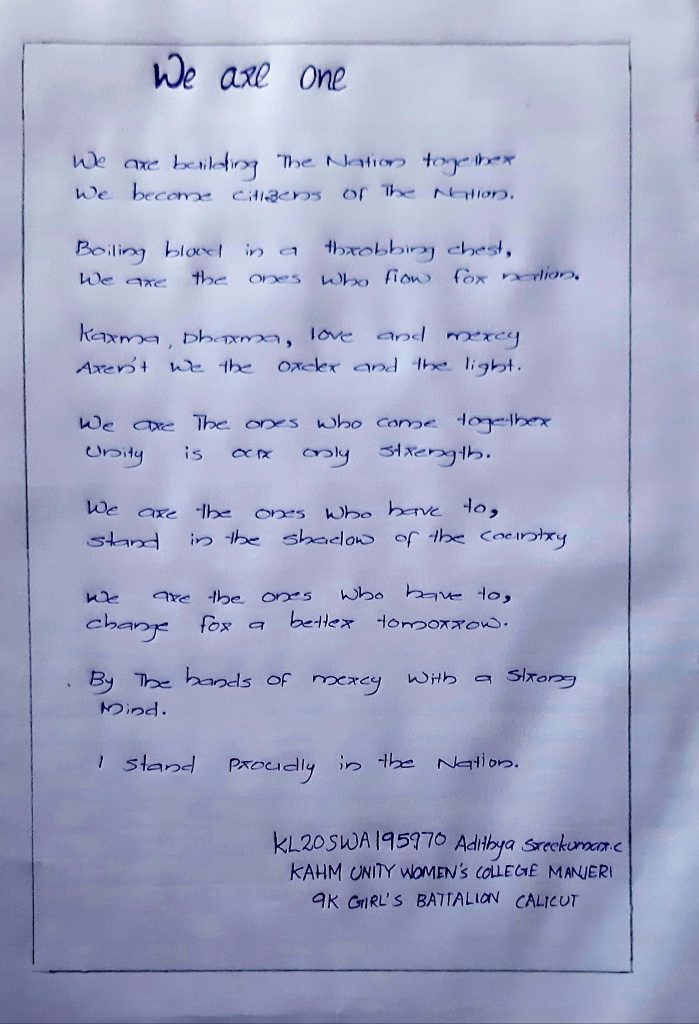 We are one
We are building The Nation together
We become citizens of The Nation.
Boiling blood in a throbbing chest,
We are the ones who flow for nation.
Karma, Dharma, love and mercy
Aren't we the order and the light.
We are The ones who come together
Unity is our only strength.
We are the ones who have to,
stand in the shadow of the country
We are the ones who have to,
change for a better tomorrow.
By The hands of mercy with a strong
Mind.
I stand proudly in the Nation.
KL20SWA195970 Adithya Sreekumar.c
KAHM UNITY WOMEN'S COLLEGE MANJERI
9K GIRL'S BATTALION CALICUT